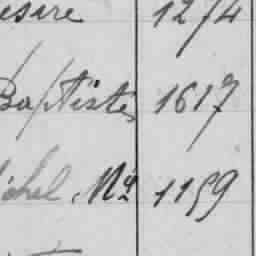 esire 1274
Baptiste 1617
ichel, Nº 1159